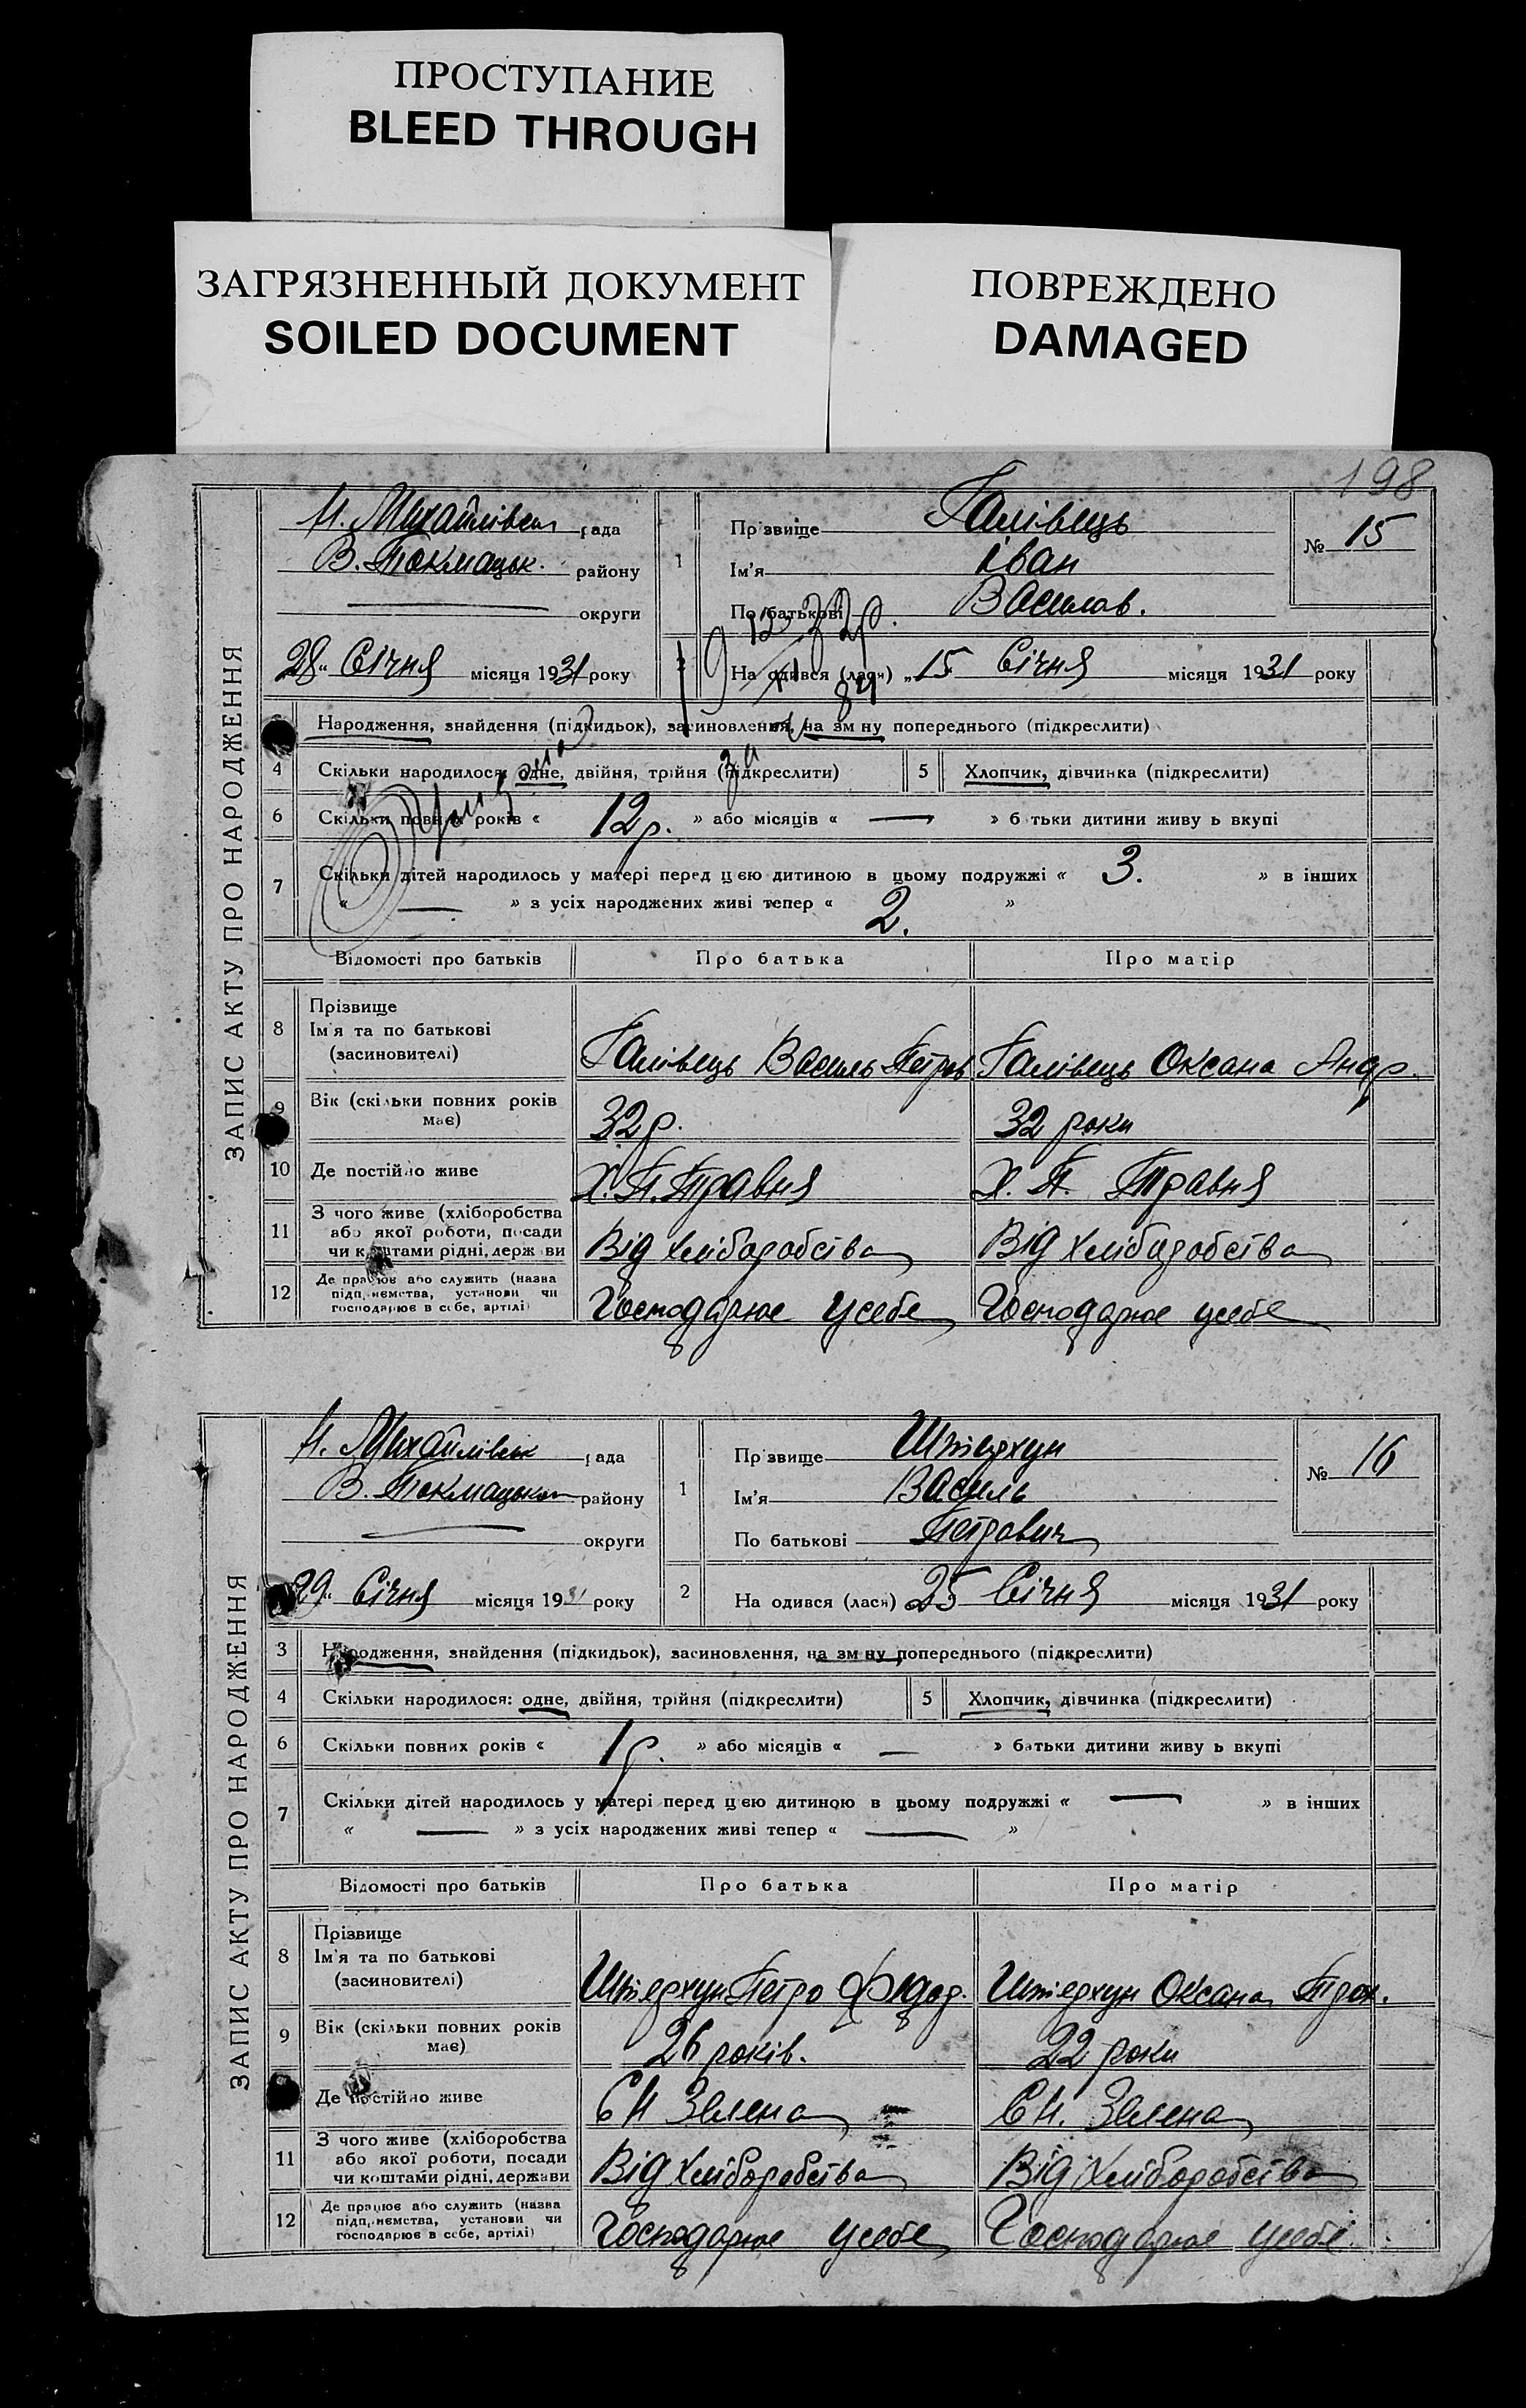 ПРОСТУПАНИЕ
BLEED THROUGH
ЗАГРЯЗНЕННЫЙ ДОКУМЕНТ
SOILED DOCUMENT
ПОВРЕЖДЕНО
DAMAGED
198
ЗАПИС АКТУ ПРО НАРОДЖЕННЯ
Н. Михайлівськ рада
В. Токмацьк. району
округи
28" Січня місяця 1931 року
1
Прізвище Галівець
Ім'я Іван
По батькові Василов.
№ 15
2
На одився (лася) „15 Січня місяця 1931 року
Народження, знайдення (підкидьок), засиновлення, на зм ну попереднього (підкреслити)
4 Скільки народилося: одне, двійня, трійня (підкреслити) 5 Хлопчик, дівчинка (підкреслити)
6 Скільки повних років « 12 р. » або місяців « — » б тьки дитини живу ь вкупі
7 Скільки дітей народилось у матері перед цією дитиною в цьому подружжі « 3. » в інших
« — » з усіх народжених живі тепер « 2. »
Відомості про батьків Про батька Про матір
8 Прізвище
Ім'я та по батькові
(засиновителі)
Галівець Василь Петров Галівець Оксана Андр.
9 Вік (скільки повних років
має)
32 р. 32 роки
10 Де постійно живе Х. П. Травня Х. П. Травня
11 З чого живе (хліборобства
або якої роботи, посади
чи коштами рідні, держ ви
Від хліборобства Від хліборобства
12 Де працює або служить (назва
підп,иємства, установи чи
господарює в себе, артілі)
Господарює усебе Господарює усебе
ЗАПИС АКТУ ПРО НАРОДЖЕННЯ
Н. Михайлівськ рада
В. Токмацьком району
округи
29" Січня місяця 1931 року
1
Прізвище Штерхун
Ім'я Василь
По батькові Петрович
№ 16
2
На одився (лася) 25 Січня місяця 1931 року
3 Народження, знайдення (підкидьок), засиновлення, на зм ну попереднього (підкреслити)
4 Скільки народилося: одне, двійня, трійня (підкреслити) 5 Хлопчик, дівчинка (підкреслити)
6 Скільки повних років « 1 р. » або місяців « — » батьки дитини живу ь вкупі
7 Скільки дітей народилось у матері перед цією дитиною в цьому подружжі « — » в інших
« — » з усіх народжених живі тепер « — »
Відомості про батьків Про батька Про матір
8 Прізвище
Ім'я та по батькові
(засиновителі)
Штерхун Петро Федор. Штерхун Оксана
9 Вік (скільки повних років
має)
26 років. 22 роки
Де постійно живе СН Зелена СН. Зелена
11 З чого живе (хліборобства
або якої роботи, посади
чи коштами рідні, держави
Від хліборобства Від хліборобства
12 Де працює або служить (назва
підп,иємства, установи чи
господарює в себе, артілі)
Господарює усебе Господарює усебе